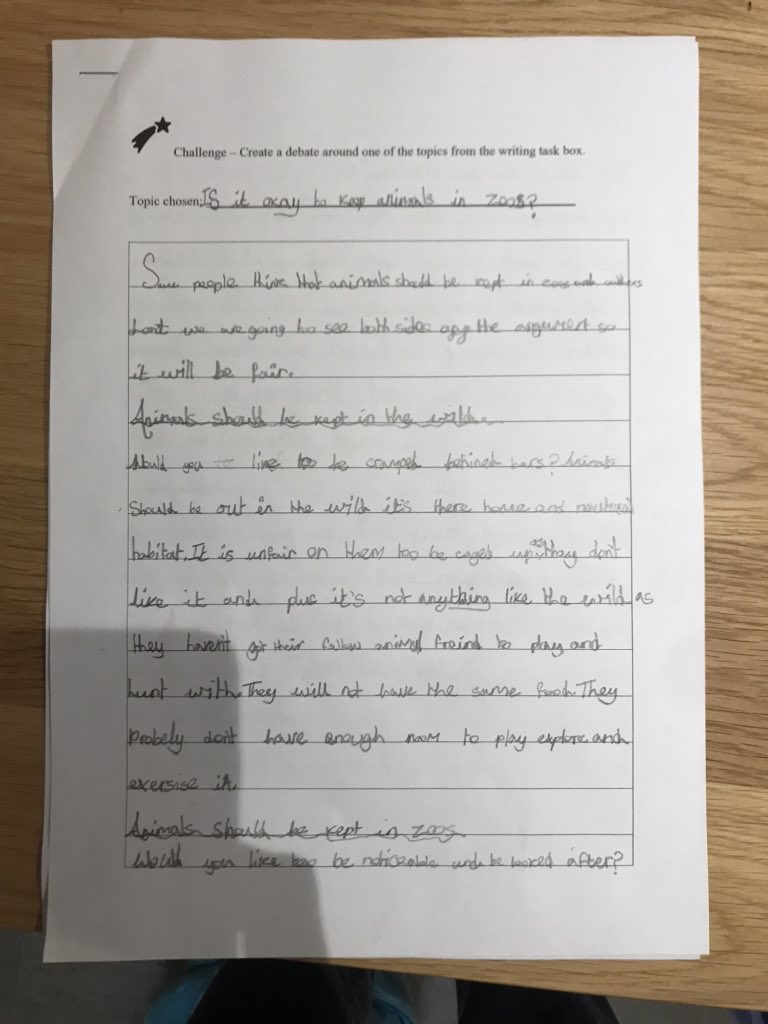 Challenge – Create a debate around one of the topics from the writing task box.
Topic chosen: IS it okay to keep animals in zoos?
Some people think that animals should be kept in zoos and others
dont we are going to see both sides off the argument so
it will be fair.
Animals should be kept in the wild.
Would you like to be cramped behined bars? Animals
should be out in the wild it's there home and
habitat. It is unfair on them too be caged up as they don't
like it and plus it's not anything like the wild as
they haven't got their fellow animal freind to play and
hunt with. They will not have the same food. They
Probely don't have enough room to play explore and
exersise in.
Animals should be kept in zoos.
Would you like too be noticeable and be looked after?